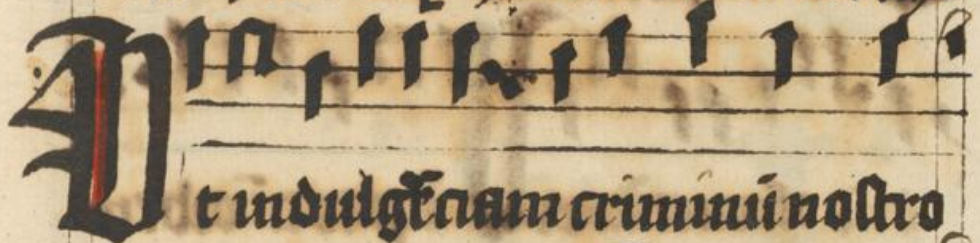 Vt indulgēciam criminū nostro